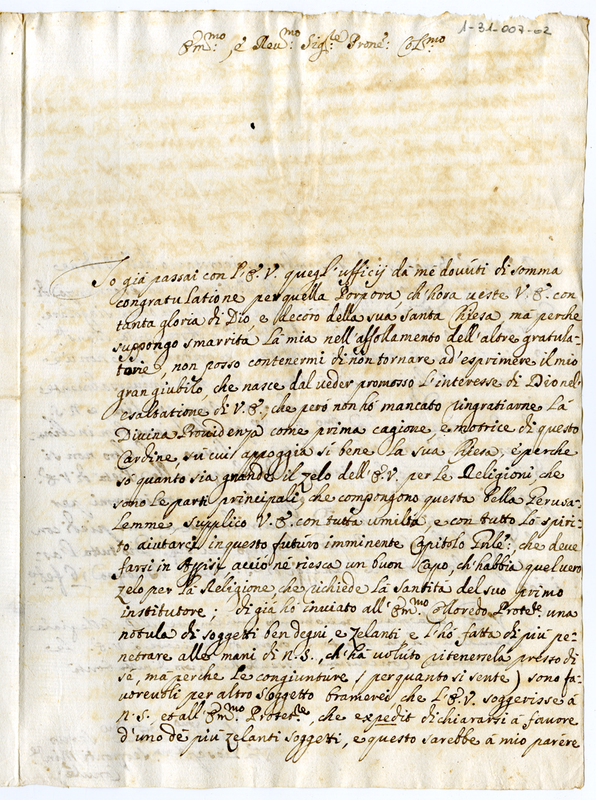 1-31-007-02
Em.mo, e Rev.mo Sig.re Prone: Col.mo
Io già passai con l'E.V. quegl'ufficij da me dovuti di somma
congratulatione per quella Porpora, ch'hora veste V.E. con
tanta gloria di Dio, e decoro della sua Santa Chiesa, ma perche
suppongo smarrita la mia nell'affollamento dell'altre gratula-
torie, non posso contenermi di non tornare ad'esprimere il mio
gran giubilo, che nasce dal veder promosso l'interesse di Dio nel'
esaltatione di V.E.; che però non hò mancato ringratiarne la
Divina Providenza come prima cagione, e motrice di questo
Cardine, su cui appoggia si bene la sua Chiesa, e perche
sò quanto sia grande il zelo dell'E.V. per le Religioni, che
sono le parti principali, che compongono questa bella Gerusa-
lemme supplico V.E. con tutta umiltà, e con tutto lo spiri-
to aiutarci in questo futuro imminente Capitolo Gnle:, che deve
farsi in Assisi acciò né riesca un buon Capo, ch'habbia quel vero
zelo per la Religione, che richiede la santità del suo primo
institutore; di già hò inviato all'Em.mo Colloredo Protet.re una
notula di soggetti ben degni, e zelanti e l'hò fatta di più pe-
netrare alle mani di N.S., ch'hà voluto ritenersela presso di
sé, ma perche le congiunture (per quanto si sente) sono fa-
vorevoli per altro soggetto bramerei che l'E.V. suggerisse à
N.S. et all'Em.mo Protet.re, che expedit dichiararsi à favore
d'uno de più zelanti soggetti, e questo sarebbe à mio parere